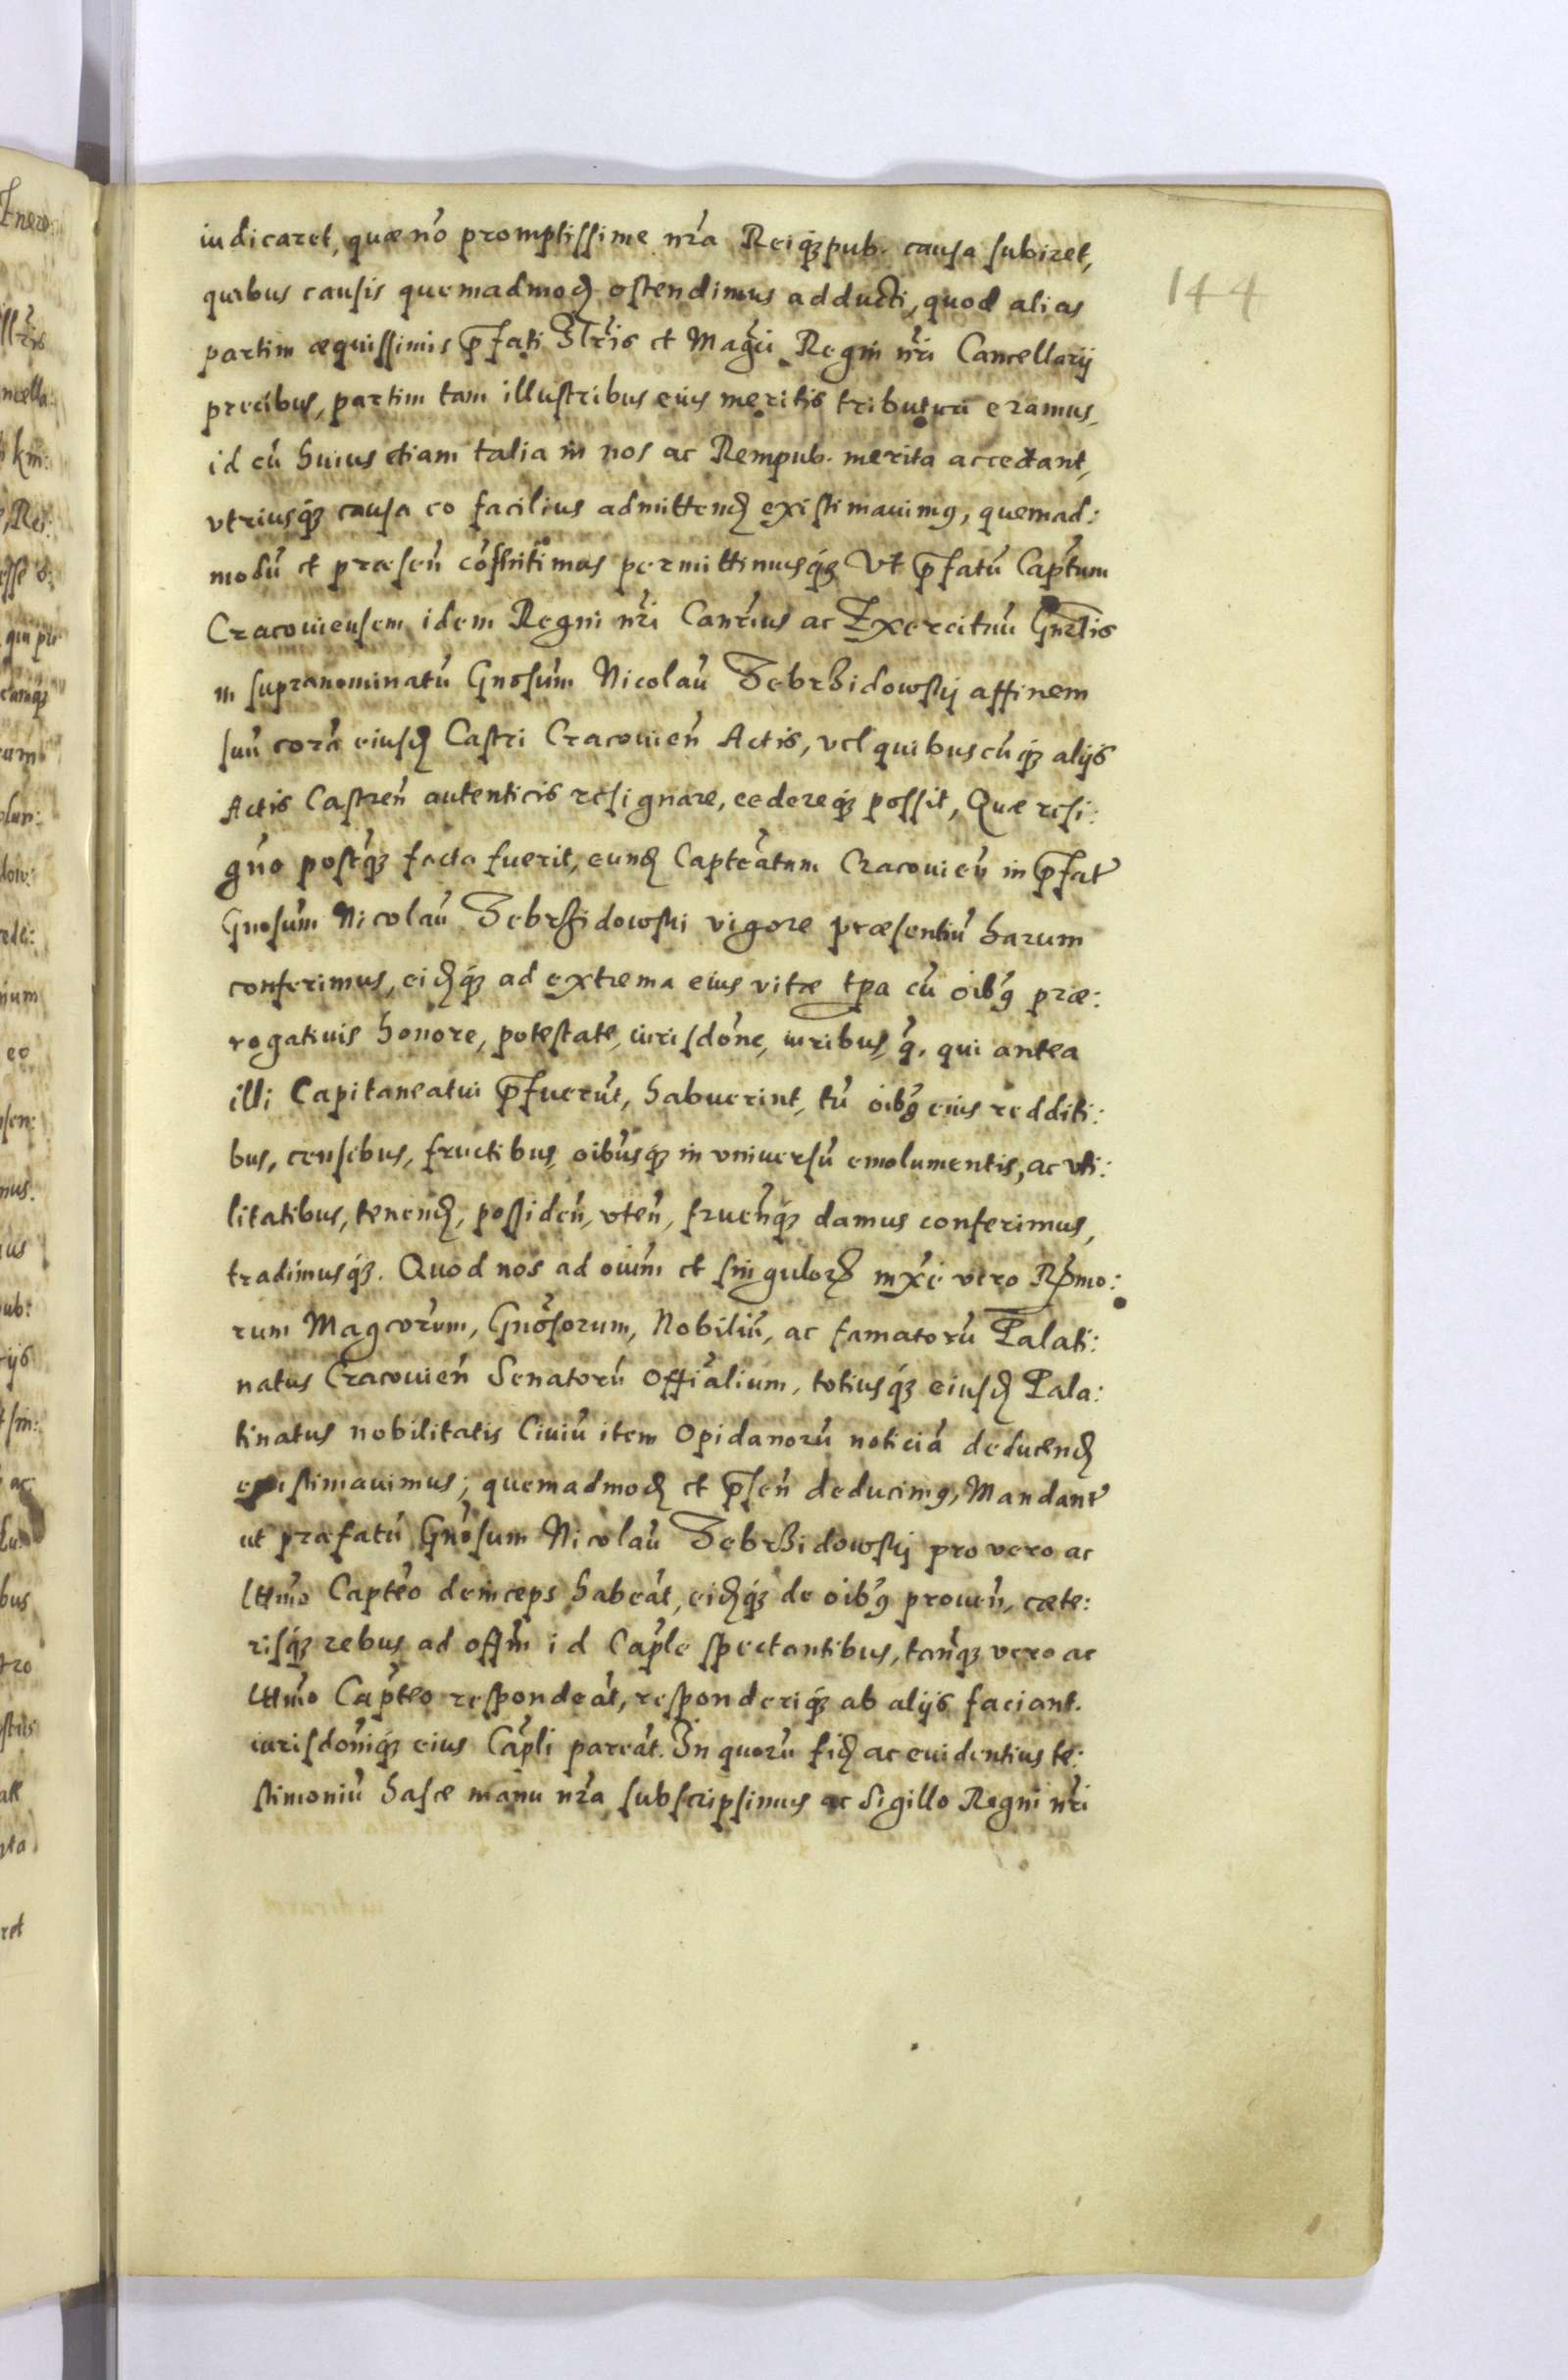 144
iudicaret, quæ nõ promptissime nr̃a Reiq̃ꝫ pub. causa subiret,
quibus causis quemadmoꝺ ostendimus adducti, quod alias
partim æquissimis p̃fati Illr̃is et Mag̃ci Regni nr̃i Cancellarij
precibus, partim tam illustribus eius meritis tributuri eramus,
id cũ huius etiam talia in nos ac Rempub. merita accedant,
vtriusq̃ꝫ causa eo facilius admittenꝺ existimauimꝰ, quemad:
modũ et præseñ cõsentimus permittimusq̃ꝫ Vt p̃fatũ Captum
Cracouiensem idem Regni nr̃i Canr̃ius ac Exercituũ Gnr̃lis
in supranominatũ Gnosum Nicolaũ Zebrzidowskj affinem
suũ corã eiusꝺ Castri Cracouieñ Actis, vel quibuscũq̃ꝫ alijs
Actis Castreñ autenticis resignare, cedereq̃ꝫ possit, Quæ resi:
gño postq̃ꝫ facta fuerit, eunꝺ Capteãtum Cracouieñ in p̃fat̃
Gnosum Nicolaũ Zebrzidowski vigore præsentiũ harum
conferimus, eiꝺq̃ꝫ ad extrema eius vitæ tp̃a cũ oib̃ꝰ præ:
rogatiuis honore, potestate, iurisdõne, iuribus, q̃. qui antea
illi Capitaneatui p̃fuerũt, habuerint, tũ oib̃ꝰ eius redditi:
bus, censibus, fructibus, oibũsq̃ꝫ in vniuersũ emolumentis, ac vti:
litatibus, tenenꝺ, possideñ, vteñ, frueñq̃ꝫ damus conferimus,
tradimusq̃ꝫ. Quod nos ad oium̃ et singuloꝝ mx̃e vero Rp̃mo:
rum Magcorũm, Gnõsorum, Nobiliũ, ac famatorũ Palati:
natus Cracouieñ Senatorũ Offiãlium, totiusq̃ꝫ eiusꝺ Pala:
tinatus nobilitatis Ciuiũ item Opidanorũ noticiã deducenꝺ
existimauimus; quemadmoꝺ et p̃señ deducimꝰ, Mandant̃
ut præfatũ Gnõsum Nicolaũ Zebrzidowskj pro vero ac
lttm̃o Captẽo deinceps habeãt, eiꝺq̃ꝫ de oib̃ꝰ proueñ, cæte:
risq̃ꝫ rebus ad offm̃ id Cap̃le spectantibus, tanq̃ꝫ vero ac
lttm̃o Cap̃teo respondeãt, responderiq̃ꝫ ab alijs faciant.
iurisdõniq̃ꝫ eius Cap̃li pareãt. In quorũ fiꝺ ac euidentius te:
stimoniũ hasce manu nr̃a subscripsimus ac Sigillo Regni nr̃i